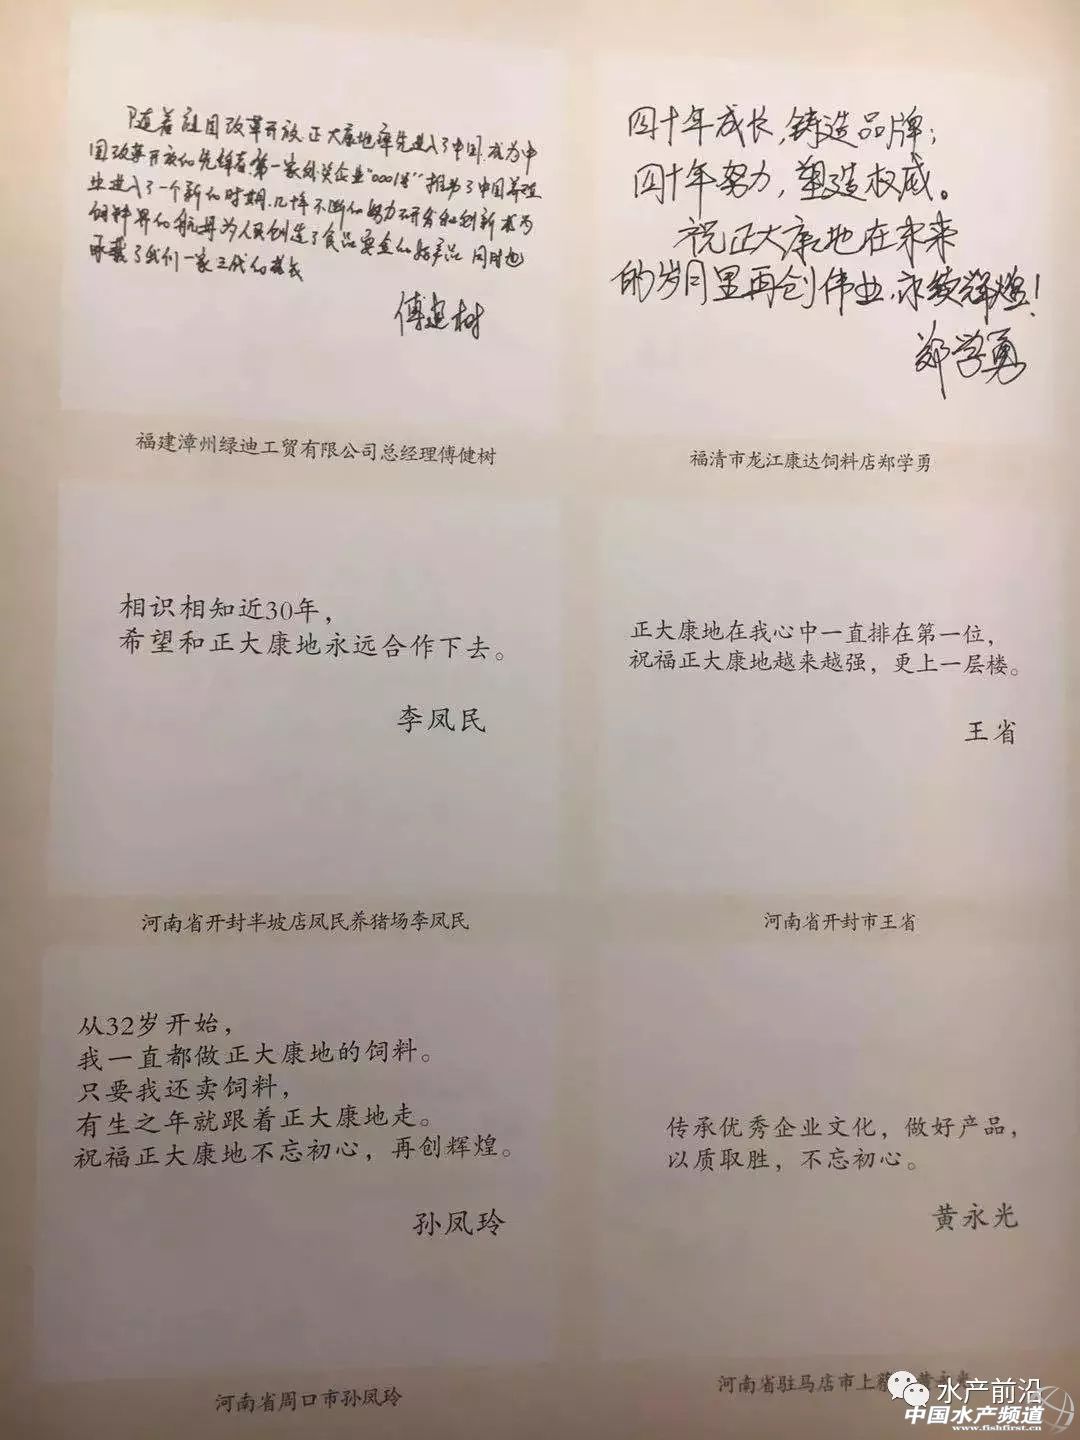 随着祖国改革开放,正大康地率先进入了中国,成为中
国改革开放的先锋者,第一家外资企业"0001号"推动了中国养殖
业进入了一个新的时期.几十年不断的努力研发和创新成为
饲料界的航母为人民创造了食品安全的好产品 同时也
承载了我们一家三代的
傅建树
福建漳州绿迪工贸有限公司总经理傅健树
四十年成长,铸造品牌;
四十年努力,塑造权威。
祝正大康地在未来
的岁月里再创伟业,永续辉煌!
郑学勇
福清市龙江康达饲料店郑学勇
相识相知近30年,
希望和正大康地永远合作下去。
李凤民
河南省开封半坡店凤民养猪场李凤民
正大康地在我心中一直排在第一位,
祝福正大康地越来越强，更上一层楼。
王省
河南省开封市王省
从32岁开始,
我一直都做正大康地的饲料。
只要我还卖饲料,
有生之年就跟着正大康地走。
祝福正大康地不忘初心，再创辉煌。
孙凤玲
河南省周口市孙凤玲
传承优秀企业文化，做好产品,
以质取胜，不忘初心。
黄永光
河南省驻马店市上蔡
水产前沿
中国水产频道
www.fishfirst.cn